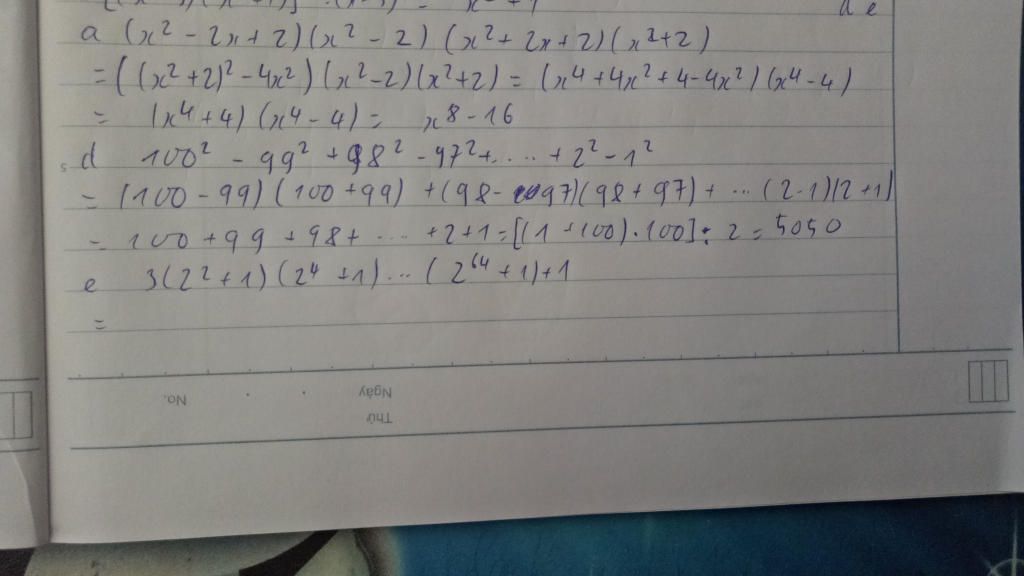 a (x² - 2x + 2)(x² - 2) (x² + 2x + 2)(x² + 2)
= ((x² + 2)² - 4x²) (x² - 2)(x² + 2) = (x⁴ + 4x² + 4 - 4x²)(x⁴ - 4)
= (x⁴ + 4)(x⁴ - 4) = x⁸ - 16
d 100² - 99² + 98² - 97² + .... + 2² - 1²
= (100 - 99)(100 + 99) + (98 - 97)(98 + 97) + ... (2 - 1)(2 + 1)
= 100 + 99 + 98 + .... + 2 + 1 = [(1 + 100) . 100] : 2 = 5050
e 3(2² + 1)(2⁴ + 1) ... (2⁶⁴ + 1) + 1
=
No.
Ngày
Thứ